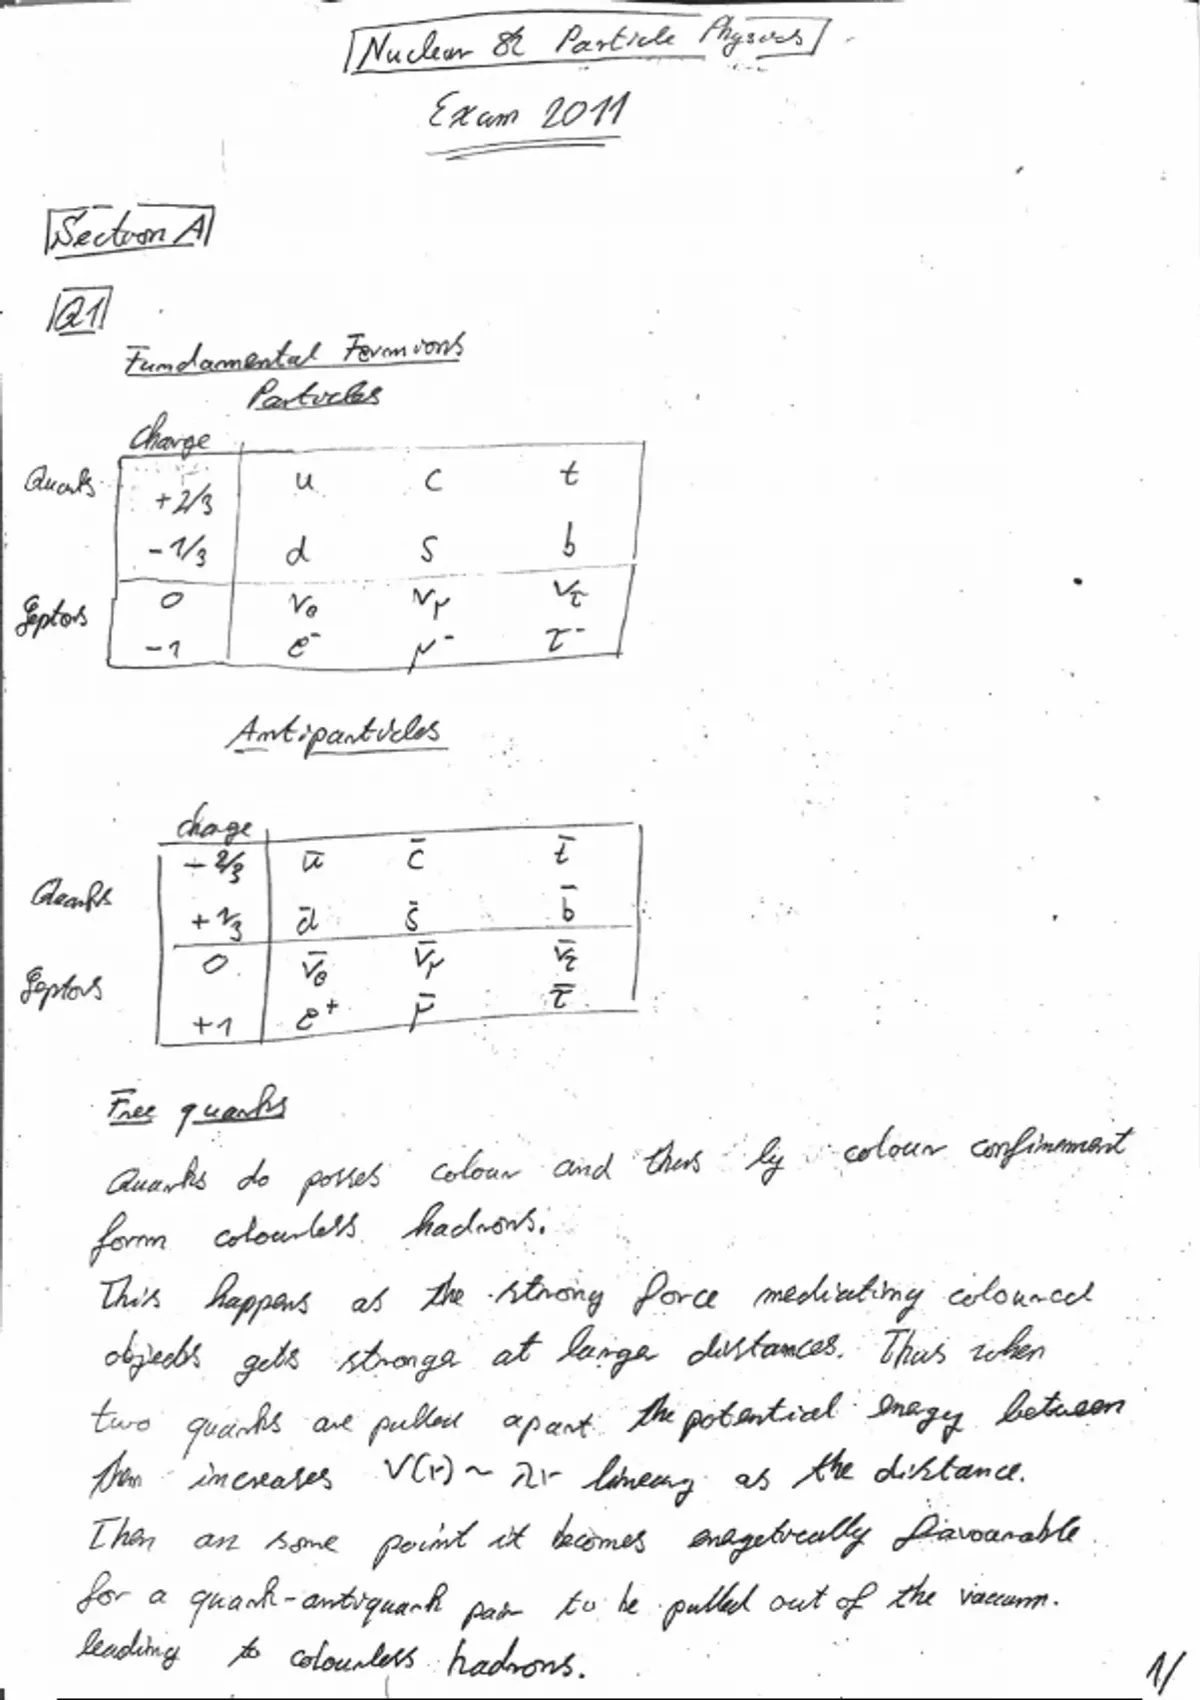 Nuclear & Particle Physics
Exam 2011
Section A
Q1
Fundamental Fermions
Particles
charge
Quarks +2/3 u c t
-1/3 d s b
Leptons 0 νe νμ ντ
-1 e⁻ μ⁻ τ⁻
Antiparticles
charge
Quarks -2/3 ū c̄ t̄
+1/3 d̄ s̄ b̄
Leptons 0 ν̄e ν̄μ ν̄τ
+1 e⁺ μ̄ τ̄
Free quarks
Quarks do posses colour and thus by colour confinement
form colourless hadrons.
This happens as the strong force mediating coloured
objects gets stronger at larger distances. Thus when
two quarks are pulled apart the potential energy between
them increases V(r) ~ λr lineary as the distance.
Then at some point it becomes energetically favourable
for a quark-antiquark pair to be pulled out of the vacuum.
leading to colourless hadrons.
1/